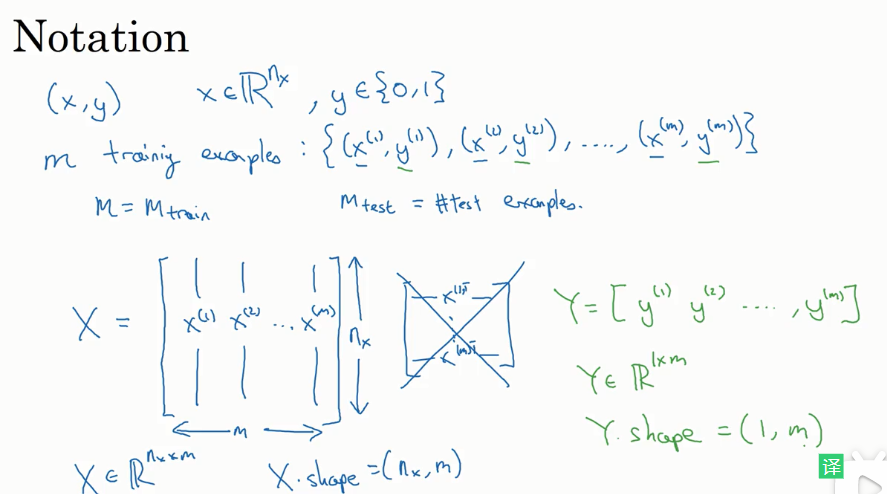 Notation
(x, y)   x ∈ ℝ^{n_x} , y ∈ {0,1}
m trainig examples : {(x^{(1)}, y^{(1)}), (x^{(2)}, y^{(2)}), ...., (x^{(m)}, y^{(m)})}
M = M_{train}   M_{test} = #test examples.
X = [ x^{(1)} x^{(2)} ... x^{(m)} ] n_x
m
x^{(1)T}
.
x^{(m)T}
Y = [ y^{(1)} y^{(2)} .... , y^{(m)} ]
Y ∈ ℝ^{1×m}
Y.shape = (1, m)
X ∈ ℝ^{n_x×m}   X.shape = (n_x, m)
译